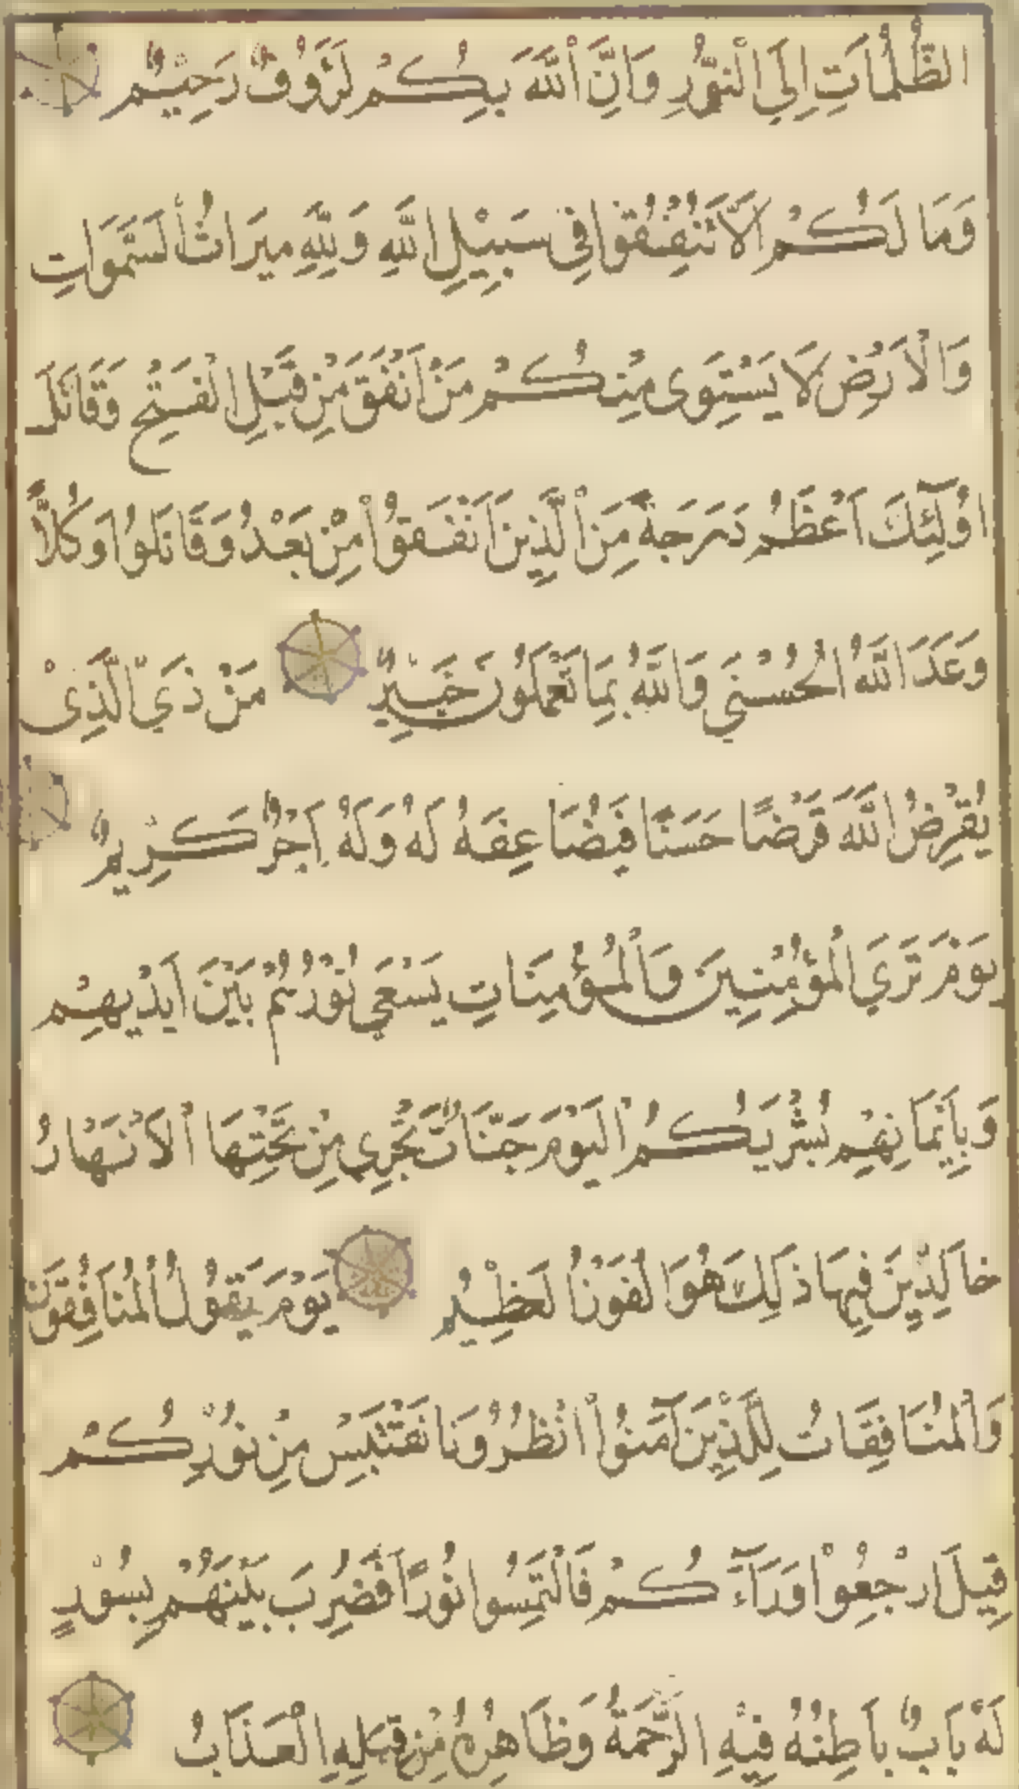 الظُّلُمَاتِ اِلَي الْنوُّرِ وَاِنَّ اْللَّهَ بِكُمْ لَرَؤُوفٌ رَحِيْمٌ
وَمَا لَكُمْ اَلَّا تُنْفِقُوا فِي سَبِيْلِ اللَّهِ وَلِلَّهِ مِيرَاثُ اْلسَّمَوَاتِ
وَالْاَرْضِ لَا يَسْتَوِى مِنْكُمْ مَنْ اَنْفَقَ مِنْ قَبْلِ الْفَتْحِ وَقَاتَلَ
اوُلَٓئِكَ اَعْظَمُ دَرَجَةً مِنَ اْلَّذِينَ اَنْفَقوُاْ مِنْ بَعْدُ وَقَاتَلوُا وَكُلاًّ
وَعَدَ اللَّهُ الْحُسْنَي وَاللَّهُ بِمَا تَعْمَلُونَ خَبِيْرٌ مَنْ ذَيِ الَّذِىْ
يُقْرِضُ اللَّهَ قَرْضًا حَسَنًا فَيُضَاعِفَهُ لَهُ وَلَهُ اَجْرٌ كَرِيمٌ
يَوْمَ تَرَي الْمؤُمِنِينَ وَاْلْمُؤْمِنَاتِ يَسْعَي نُوْرُهُمْ بَيْنَ اَيْدِيهِمْ
وَبِاَيْمَانِهِمْ بُشْرَيكُمُ اْليَوْمَ جَنَّاتٌ تَجْرِي مِنْ تَحْتِهَا اْلاَنْهَارُ
خَالِدِيْنَ فِيهَا ذَلِكَ هُوَ الْفَوْزُ اْلعَظِيْمُ يَوْمَ يَقوُلُ اْلمُنَافِقوُنَ
وَاْلمُنَافِقَاتُ لِلَّذِيْنَ آمَنُواْ انْظُرُوْنَا نَقْتَبِسْ مِنْ نوُرِكُمْ
قِيْلَ ارْجِعُواْ وَرَآءَكُمْ فَالْتَمِسُوا نُورًا فَضُرِبَ بَيْنَهُمْ بِسُوْرٍ
لَهُ بَابٌ بَاطِنُهُ فِيْهِ الرَّحْمَةُ وَظَاهِرُهُ مِنْ قِبَلِهِ الْعَذَابُ